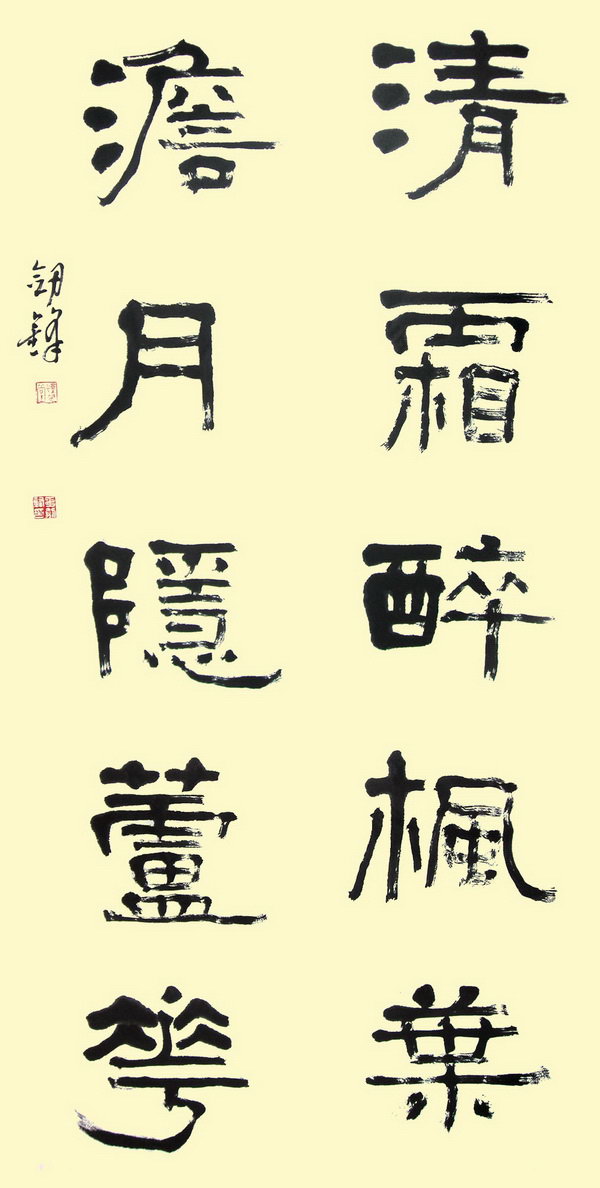 清霜醉楓葉
澹月隱蘆花
劍鋒